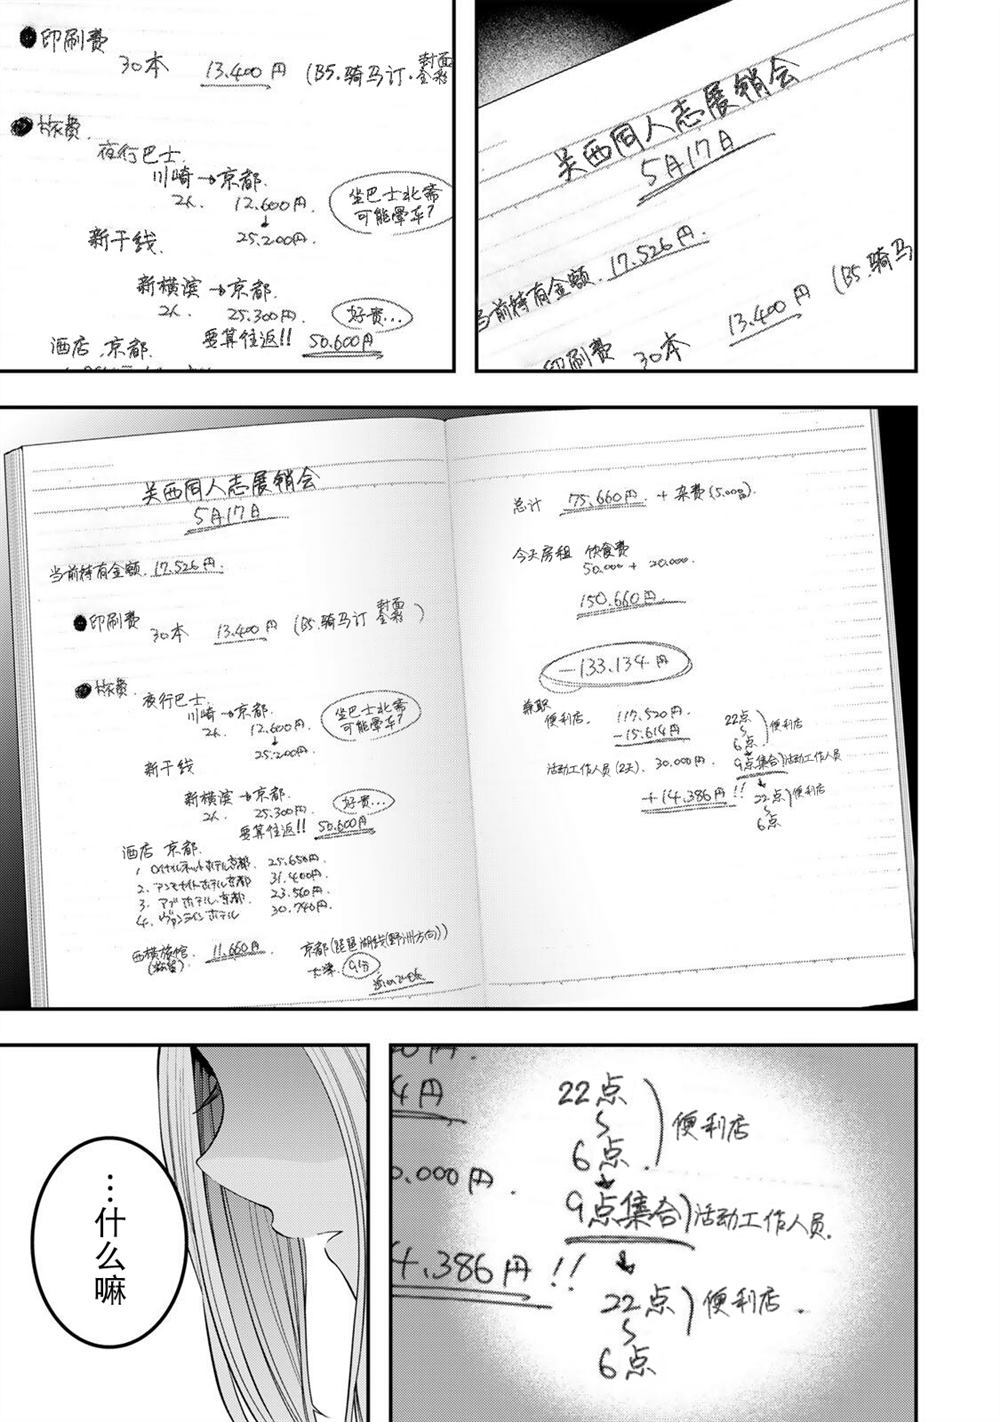 关西同人志展销会
5月17日
当前持有金额 17.526円.
印刷费 30本 13.400円 (B5.骑马
●印刷费
30本 13.400円 (B5.骑马订.封面全彩
●旅费.
夜行巴士.
川崎→京都.
2人. 12.600円.
↓
25.200円.
坐巴士北斋
可能晕车?
新干线.
新横滨→京都.
2人. 25.300円.
好贵...
要算往返!! 50.600円
酒店.京都.
关西同人志展销会
5月17日
当前持有金额. 17.526円.
●印刷费 30本 13.400円 (B5.骑马订 封面全彩)
●旅费.
夜行巴士.
川崎→京都.
2人. 12.600円.
↓
25.200円.
坐巴士北斋
可能晕车?
新干线
新横滨→京都.
2人. 25.300円.
好贵...
要算往返!! 50.600円
酒店 京都.
1 ホテル京都. 25.650円.
2. ホテル京都 31.400円.
3. ホテル.京都. 23.560円.
4. ホテル 30.740円.
11.660円. 京都(琵琶湖线(野洲方向))
大津. 9分
总计 75.660円 + 杂费(5.000).
今天房租 饮食费
50.000 + 20.000.
150.660円.
-133.134円
兼职
便利店. 117.520円.
-15.614円
活动工作人员(2天). 30.000円.
+14.386円!!
22点
~
6点.
便利店
9点集合)活动工作人员
↓
22点
~
6点
便利店
000円.
4.386円!!
22点
~
6点.
便利店
↓
9点集合)活动工作人员.
↓
22点
~
6点
便利店.
…什么嘛